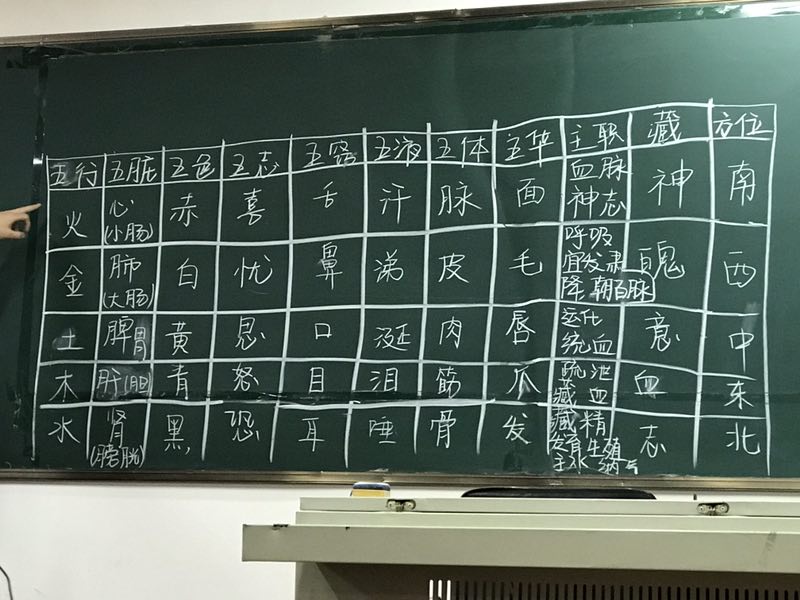 五行 五脏 五色 五志 五窍 五液 五体 五华 主职 藏 方位
火 心(小肠) 赤 喜 舌 汗 脉 面 血脉神志 神 南
金 肺(大肠) 白 忧 鼻 涕 皮 毛 呼吸宣发肃降朝百脉 魄 西
土 脾胃 黄 思 口 涎 肉 唇 运化统血 意 中
木 肝(胆 青 怒 目 泪 筋 爪 疏泄藏血 血 东
水 肾(膀胱) 黑 恐 耳 唾 骨 发 藏精发育生殖主水纳气 志 北